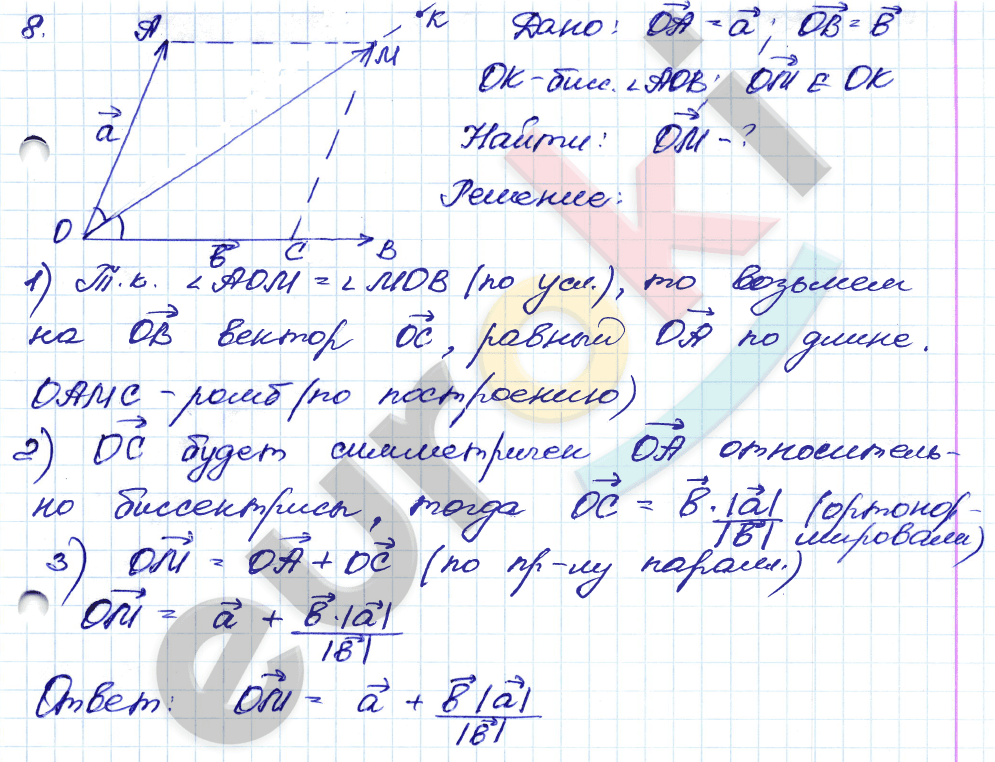 8. A K Дано: OA⃗ = a⃗; OB⃗ = в⃗
M
OK - бисс. ∠AOB; OM⃗ ∈ OK
a⃗
Найти: OM⃗ - ?
Решение:
O в⃗ C B
1) Т.к. ∠AOM = ∠MOB (по усл.), то возьмем
на OB⃗ вектор OC⃗, равный OA⃗ по длине.
OAMC - ромб (по построению)
2) OC⃗ будет симметричен OA⃗ относитель-
но биссектрисы, тогда OC⃗ = в⃗ · |a⃗| / |в⃗| (ортонор-
мировали)
3) OM⃗ = OA⃗ + OC⃗ (по пр-лу паралл.)
OM⃗ = a⃗ + в⃗ · |a⃗| / |в⃗|
Ответ: OM⃗ = a⃗ + в⃗ |a⃗| / |в⃗|
euroki